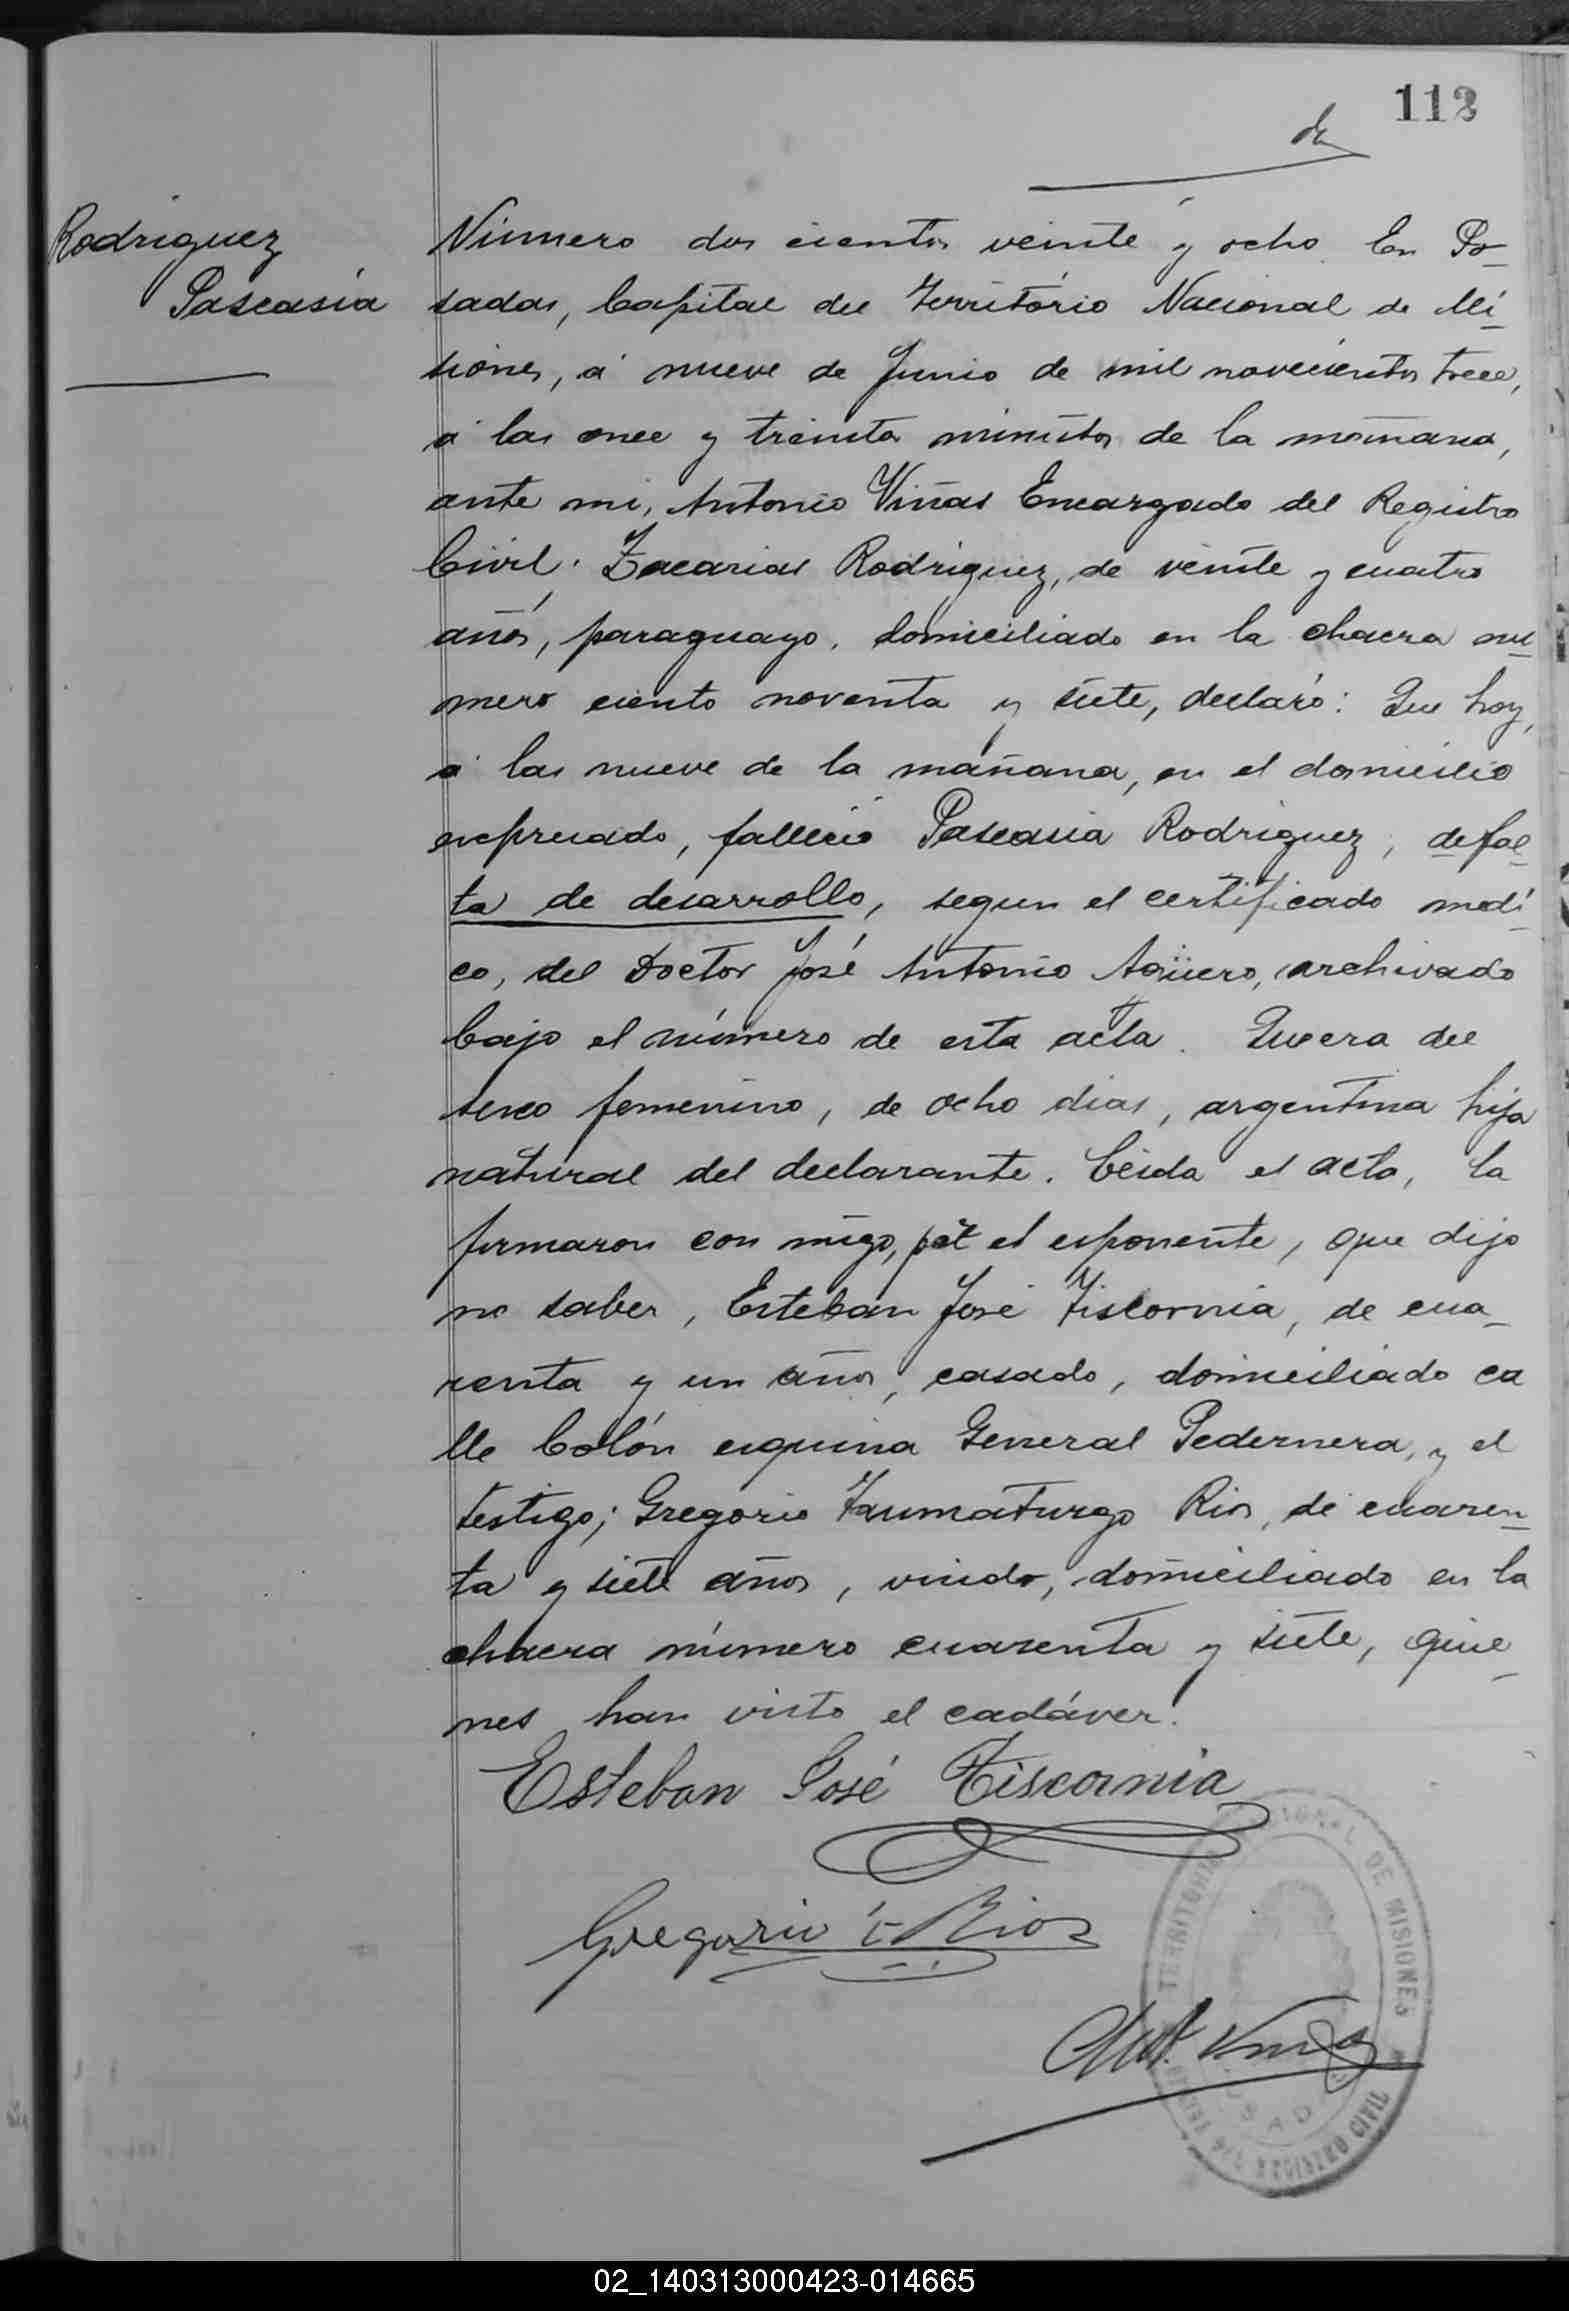 112
Rodriguez
Pascasia
Número dos cientos veinte y ocho. En Po-
sadas, Capital del Territorio Nacional de Mi-
siones, á nueve de Junio de mil novecientos trece,
á las once y treinta minutos de la mañana,
ante mi, Antonio Viñas Encargado del Registro
Civil. Zacarias Rodriguez, de veinte y cuatro
años, paraguayo, domiciliado en la chacra nu-
mero ciento noventa y siete, declaró: Que hoy,
á las nueve de la mañana, en el domicilio
expresado, falleció Pascasia Rodriguez, de fal-
ta de desarrollo, segun el certificado medi-
co, del Doctor José Antonio Agüero, archivado
bajo el número de esta acta. Que era del
sexo femenino, de ocho dias, argentina hija
natural del declarante. Leida el acta, la
firmaron con migo, por el exponente, que dijo
no saber, Esteban José Tiscornia, de cua-
renta y un años, casado, domiciliado ca
lle Colón esquina General Pedernera, y el
testigo; Gregorio Taumaturgo Rios, de cuaren-
ta y siete años, viudo, domiciliado en la
chacra número cuarenta y siete, quie-
nes han visto el cadáver.
Esteban José Tiscornia
Gregorio T Rios
Ant. Viñas
TERRITORIO NACIONAL DE MISIONES
REGISTRO CIVIL
02_140313000423-014665